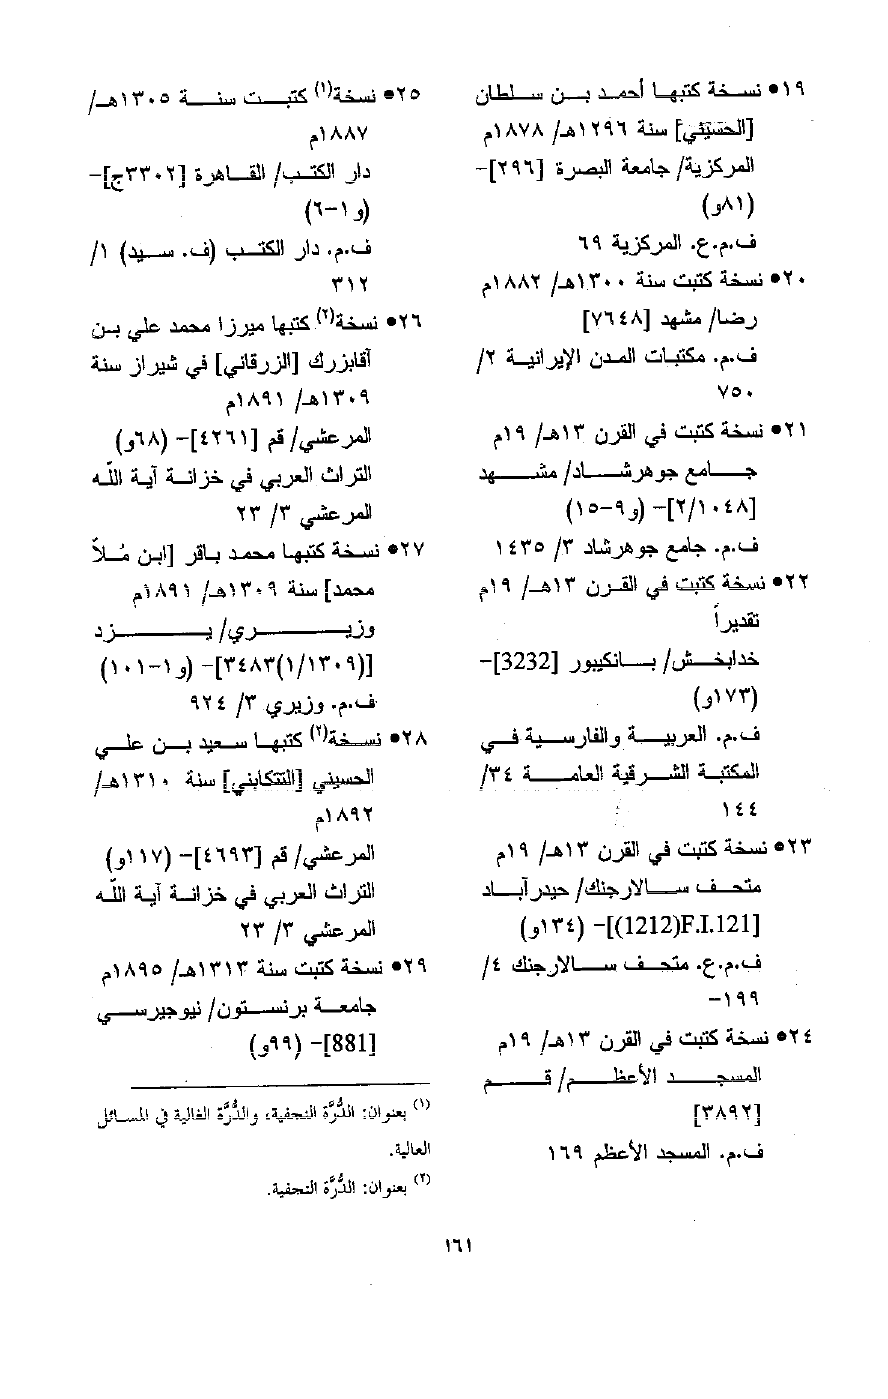 ١٩• نسخة كتبها أحمد بن سلطان
[الحسَيْني] سنة ١٢٩٦هـ/ ١٨٧٨م
المركزية/ جامعة البصرة [٢٩٦]-
(٨١و)
ف.م.ع. المركزية ٦٩
٢٠• نسخة كتبت سنة ١٣٠٠هـ/ ١٨٨٢م
رضا/ مشهد [٧٦٤٨]
ف.م. مكتبات المدن الإيرانية ٢/
٧٥٠
٢١• نسخة كتبت في القرن ١٣هـ/ ١٩م
جامع جوهرشاد/ مشهد
[٢/١٠٤٨]- (و٩-١٥)
ف.م. جامع جوهرشاد ٣/ ١٤٣٥
٢٢• نسخة كتبت في القرن ١٣هـ/ ١٩م
تقديراً
خدابخش/ بانكيبور [3232]-
(١٧٣و)
ف.م. العربية والفارسية في
المكتبة الشرقية العامة ٣٤/
١٤٤
٢٣• نسخة كتبت في القرن ١٣هـ/ ١٩م
متحف سالارجنك/ حيدرآباد
[F.I.121(1212)]- (١٣٤و)
ف.م.ع. متحف سالارجنك ٤/
١٩٩-
٢٤• نسخة كتبت في القرن ١٣هـ/ ١٩م
المسجد الأعظم/ قم
[٣٨٩٢]
ف.م. المسجد الأعظم ١٦٩
٢٥• نسخة(١) كتبت سنة ١٣٠٥هـ/
١٨٨٧م
دار الكتب/ القاهرة [٣٣٠٢ج]-
(و١-٦)
ف.م. دار الكتب (ف. سيد) ١/
٣١٢
٢٦• نسخة(٢) كتبها ميرزا محمد علي بن
آقابزرك [الزرقاني] في شيراز سنة
١٣٠٩هـ/ ١٨٩١م
المرعشي/ قم [٤٢٦١]- (٦٨و)
التراث العربي في خزانة آية اللّه
المرعشي ٣/ ٢٣
٢٧• نسخة كتبها محمد باقر [ابن مُلاّ
محمد] سنة ١٣٠٩هـ/ ١٨٩١م
وزيري/ يزد
[(١/١٣٠٩)٣٤٨٣]- (و١-١٠١)
ف.م. وزيري ٣/ ٩٢٤
٢٨• نسخة(٢) كتبها سعيد بن علي
الحسيني [التنكابني] سنة ١٣١٠هـ/
١٨٩٢م
المرعشي/ قم [٤٦٩٣]- (١١٧و)
التراث العربي في خزانة آية اللّه
المرعشي ٣/ ٢٣
٢٩• نسخة كتبت سنة ١٣١٣هـ/ ١٨٩٥م
جامعة برنستون/ نيوجيرسي
[881]- (٩٩و)
(١) بعنوان: الدُّرَّة النجفية، والدُّرَّة الغالية في المسائل
العالية.
(٢) بعنوان: الدُّرَّة النجفية.
١٦١